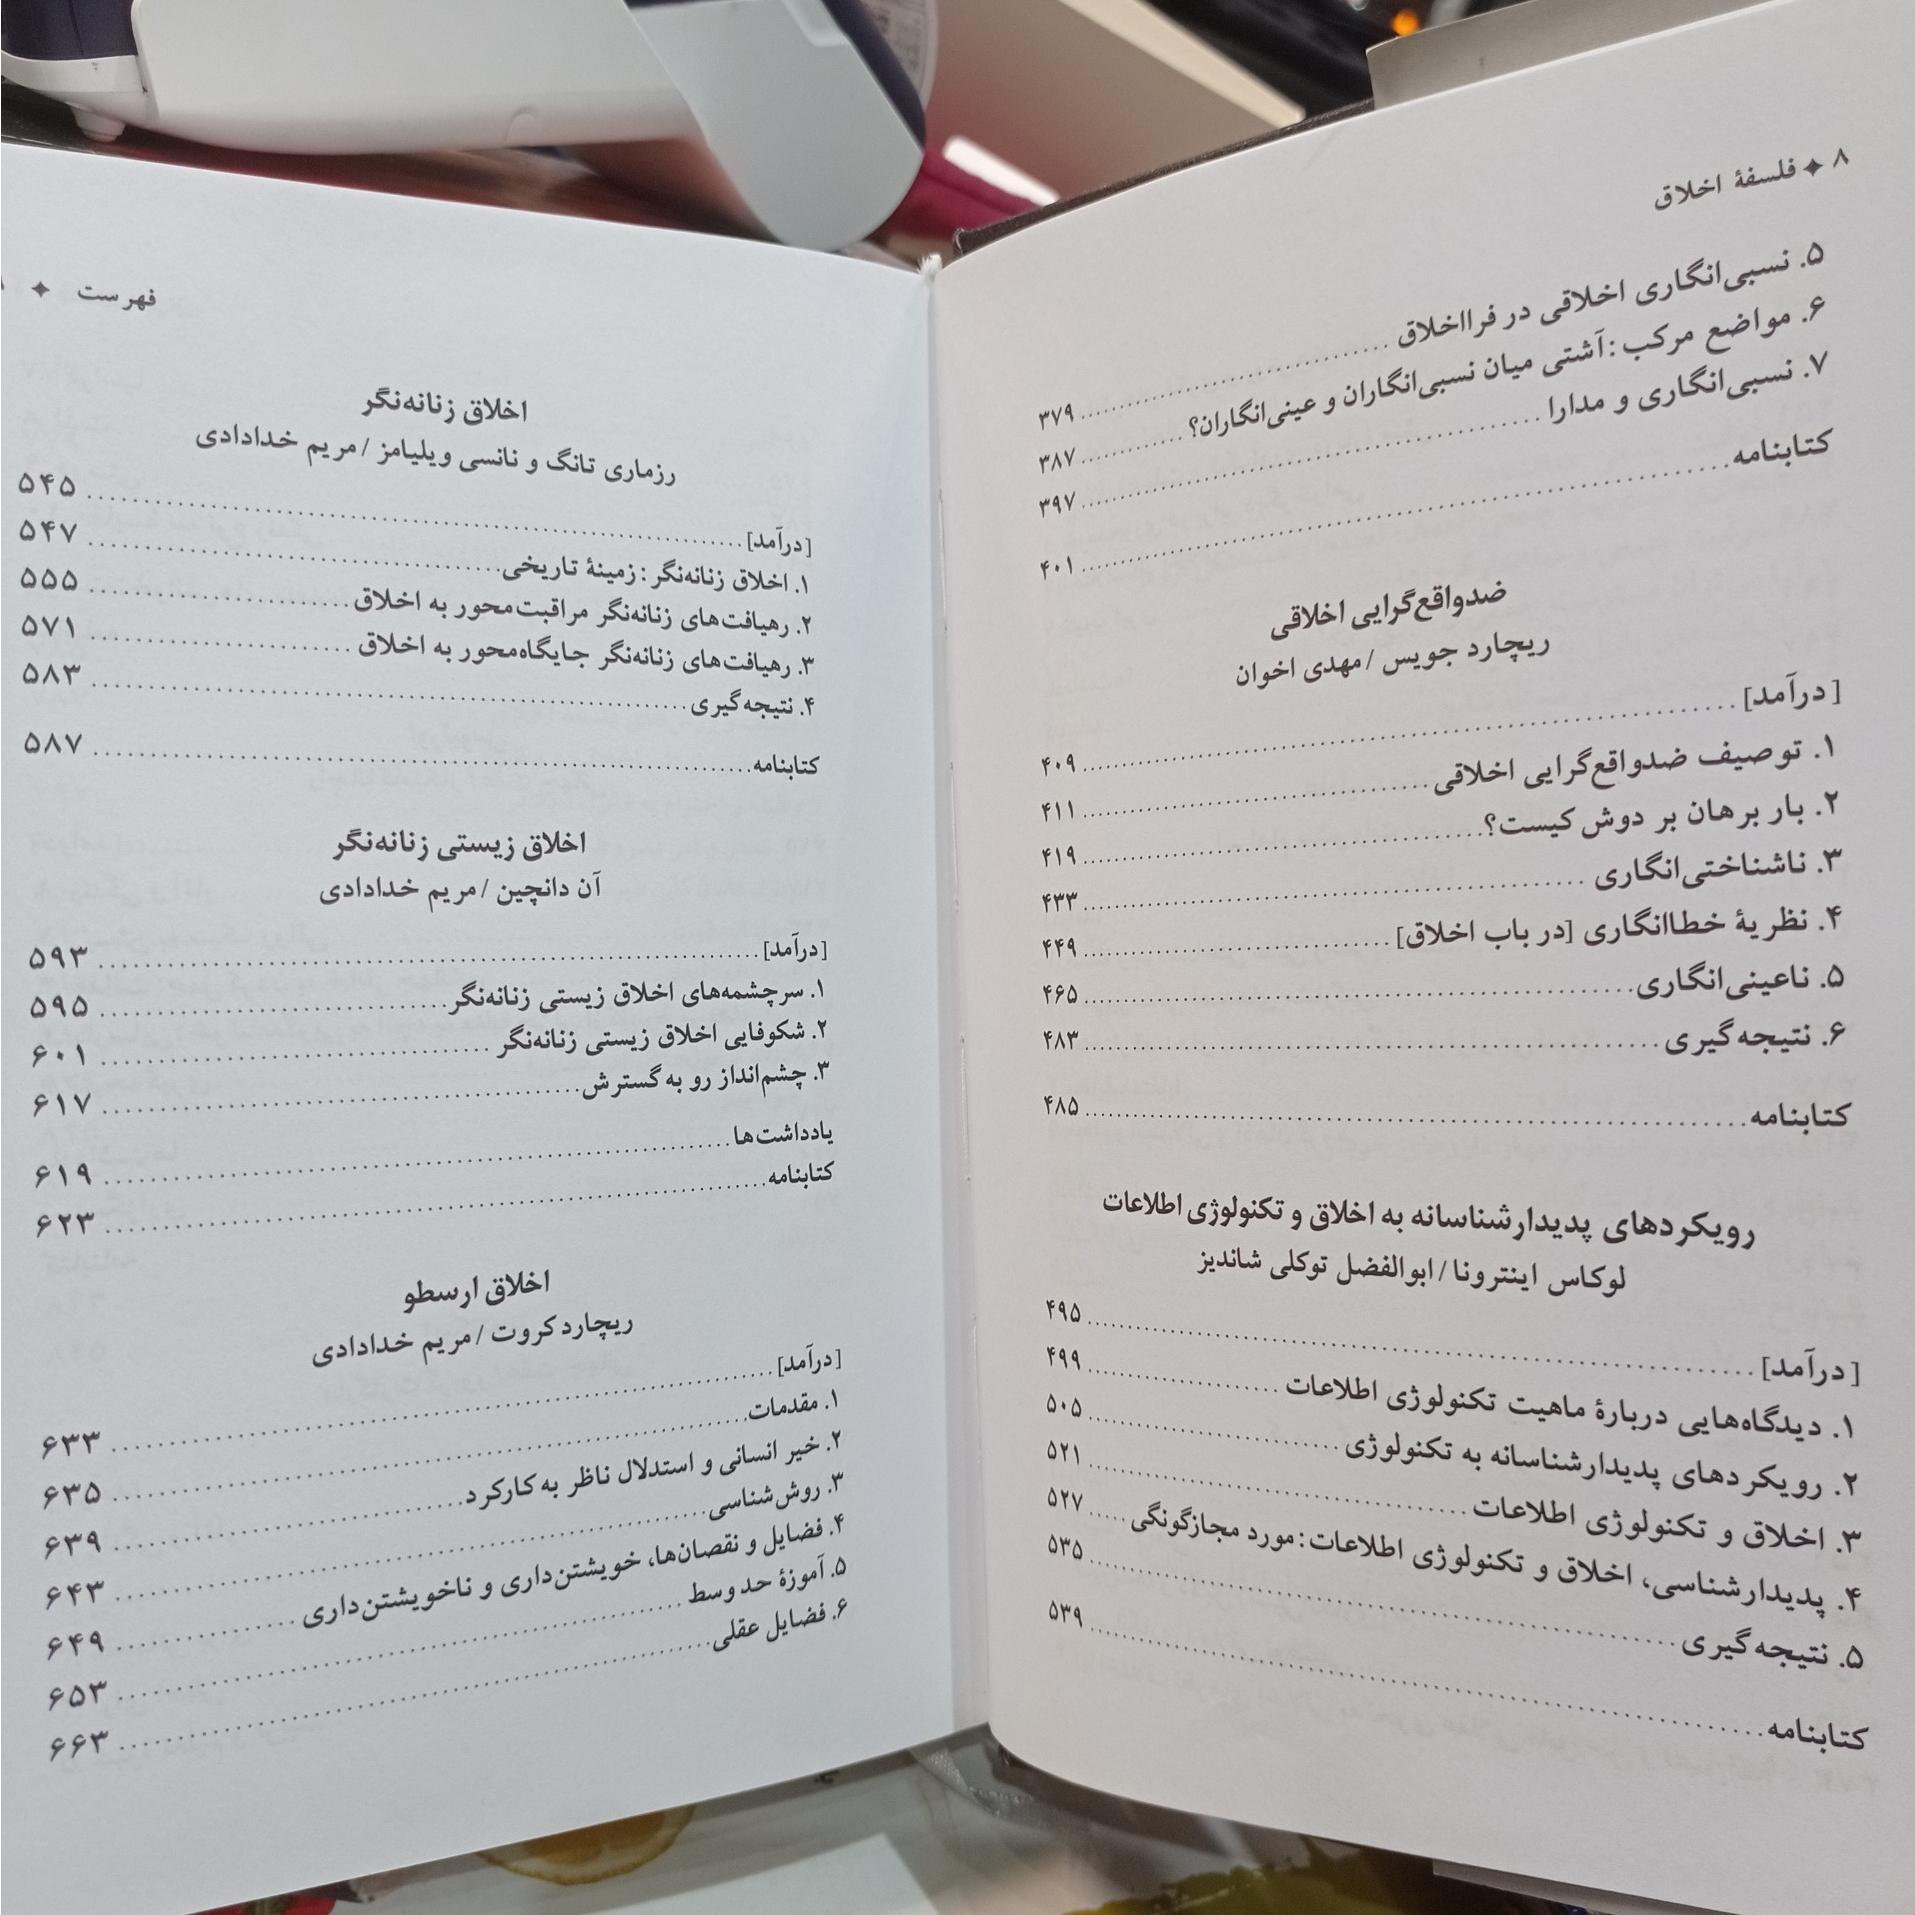 ۸ ✦ فلسفهٔ اخلاق
۵. نسبی‌انگاری اخلاقی در فرااخلاق ........ ۳۷۹
۶. مواضع مرکب: آشتی میان نسبی‌انگاران و عینی‌انگاران؟ ........ ۳۸۷
۷. نسبی‌انگاری و مدارا ........ ۳۹۷
کتابنامه ........ ۴۰۱
ضدواقع‌گرایی اخلاقی
ریچارد جویس / مهدی اخوان
[درآمد] ........ ۴۰۹
۱. توصیف ضدواقع‌گرایی اخلاقی ........ ۴۱۱
۲. بار برهان بر دوش کیست؟ ........ ۴۱۹
۳. ناشناختی‌انگاری ........ ۴۳۳
۴. نظریهٔ خطاانگاری [در باب اخلاق] ........ ۴۴۹
۵. ناعینی‌انگاری ........ ۴۶۵
۶. نتیجه‌گیری ........ ۴۸۳
کتابنامه ........ ۴۸۵
رویکردهای پدیدارشناسانه به اخلاق و تکنولوژی اطلاعات
لوکاس اینترونا / ابوالفضل توکلی شاندیز
[درآمد] ........ ۴۹۵
۱. دیدگاه‌هایی دربارهٔ ماهیت تکنولوژی اطلاعات ........ ۴۹۹
۲. رویکردهای پدیدارشناسانه به تکنولوژی ........ ۵۰۵
۳. اخلاق و تکنولوژی اطلاعات ........ ۵۲۱
۴. پدیدارشناسی، اخلاق و تکنولوژی اطلاعات: مورد مجازگونگی ........ ۵۲۷
۵. نتیجه‌گیری ........ ۵۳۵
کتابنامه ........ ۵۳۹
فهرست ✦
اخلاق زنانه‌نگر
رزماری تانگ و نانسی ویلیامز / مریم خدادادی
[درآمد] ........ ۵۴۵
۱. اخلاق زنانه‌نگر: زمینهٔ تاریخی ........ ۵۴۷
۲. رهیافت‌های زنانه‌نگر مراقبت‌محور به اخلاق ........ ۵۵۵
۳. رهیافت‌های زنانه‌نگر جایگاه‌محور به اخلاق ........ ۵۷۱
۴. نتیجه‌گیری ........ ۵۸۳
کتابنامه ........ ۵۸۷
اخلاق زیستی زنانه‌نگر
آن دانچین / مریم خدادادی
[درآمد] ........ ۵۹۳
۱. سرچشمه‌های اخلاق زیستی زنانه‌نگر ........ ۵۹۵
۲. شکوفایی اخلاق زیستی زنانه‌نگر ........ ۶۰۱
۳. چشم‌انداز رو به گسترش ........ ۶۱۷
یادداشت‌ها ........ ۶۱۹
کتابنامه ........ ۶۲۳
اخلاق ارسطو
ریچارد کروت / مریم خدادادی
[درآمد] ........ ۶۳۳
۱. مقدمات ........ ۶۳۵
۲. خیر انسانی و استدلال ناظر به کارکرد ........ ۶۳۹
۳. روش‌شناسی ........ ۶۴۳
۴. فضایل و نقصان‌ها، خویشتن‌داری و ناخویشتن‌داری ........ ۶۴۹
۵. آموزهٔ حد وسط ........ ۶۵۳
۶. فضایل عقلی ........ ۶۶۳